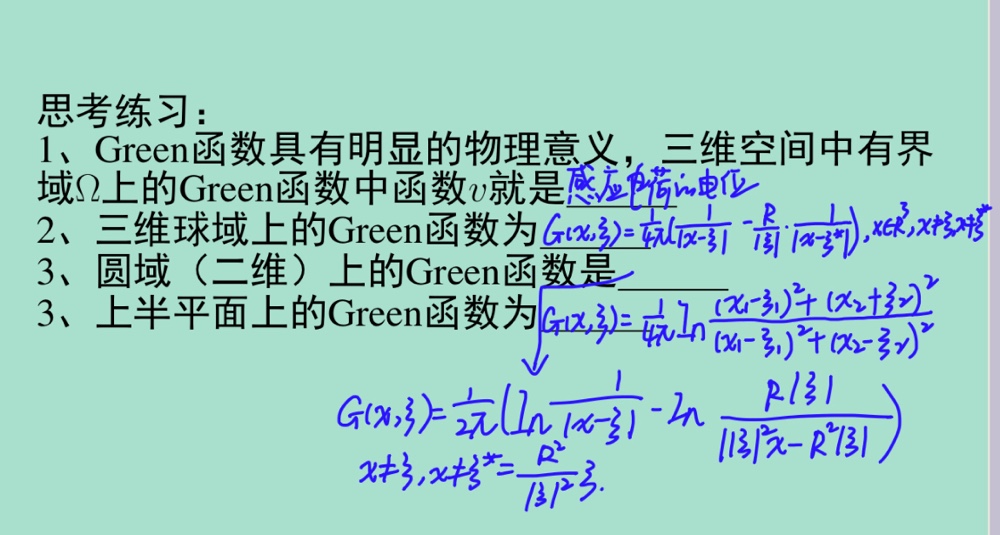 思考练习：
1、Green函数具有明显的物理意义，三维空间中有界
域Ω上的Green函数中函数v就是感应电荷的电位
2、三维球域上的Green函数为G(x,ξ)=1/4π(1/|x-ξ| - R/|ξ|·1/|x-ξ*|), x∈R³, x≠ξ, x≠ξ*
3、圆域（二维）上的Green函数是______
3、上半平面上的Green函数为G(x,ξ)=1/4π ln ((x₁-ξ₁)²+(x₂+ξ₂)²)/((x₁-ξ₁)²+(x₂-ξ₂)²)
G(x,ξ)=1/2π(ln 1/|x-ξ| - ln R|ξ|/||ξ|²x-R²|ξ|)
x≠ξ, x≠ξ*=R²/|ξ|² ξ.